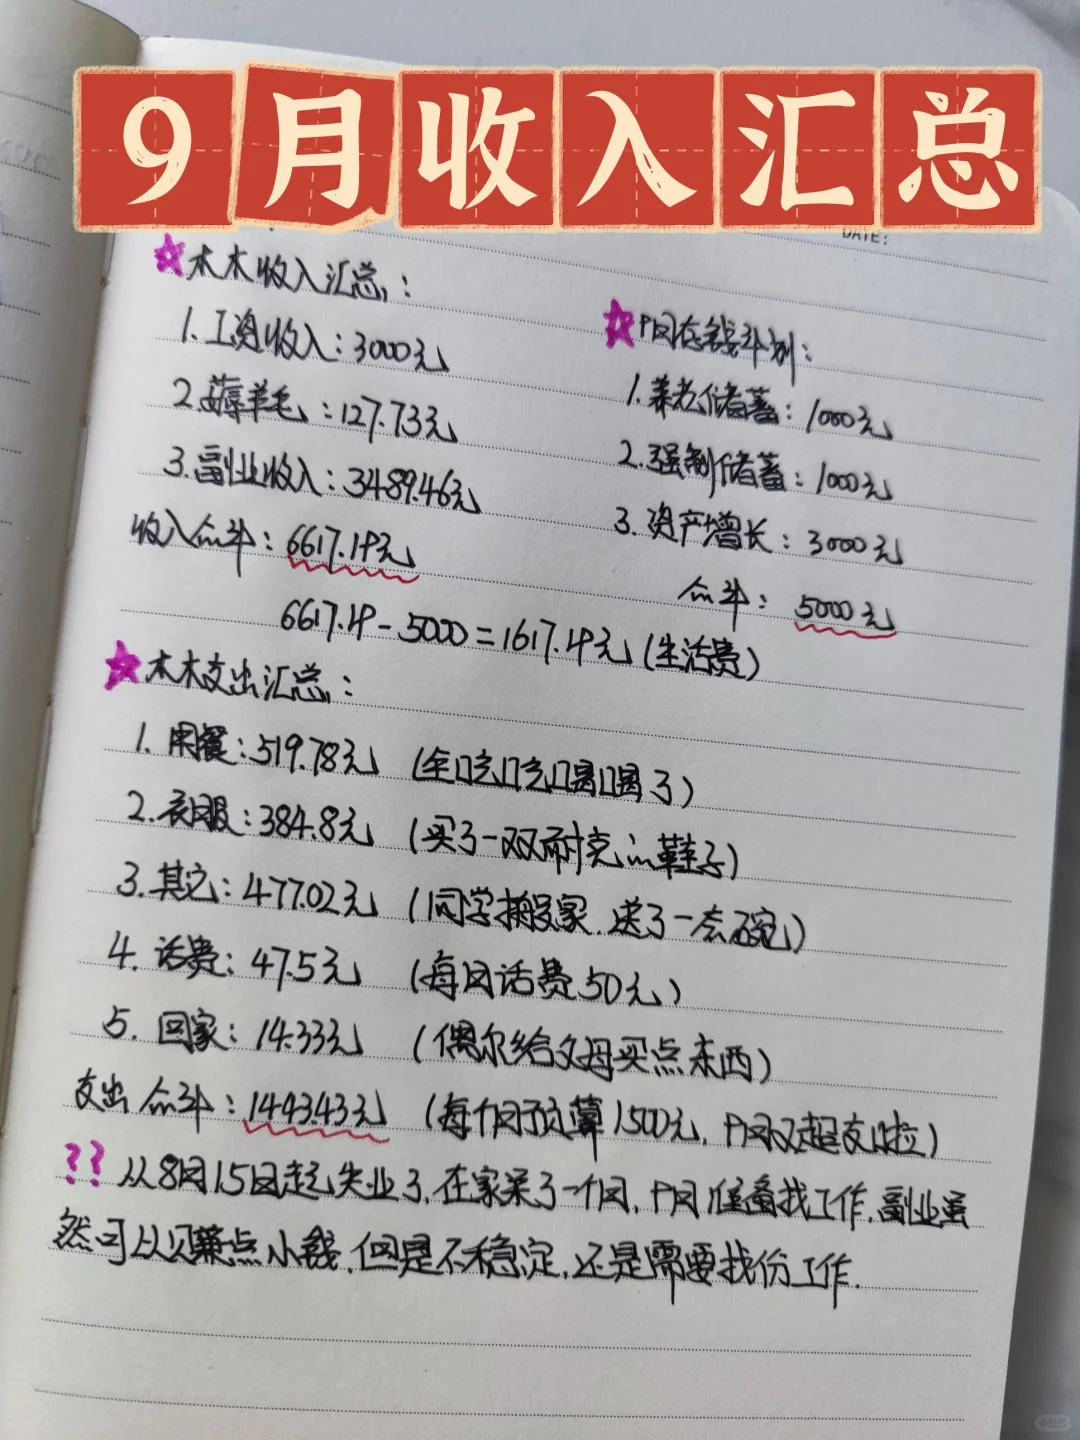 9月收入汇总
DATE:
木木收入汇总:
1.工资收入:3000元
2.薅羊毛:127.73元
3.副业收入:3489.46元
收入合计:6617.19元
9月存钱计划:
1.养老储蓄:1000元
2.强制储蓄:1000元
3.资产增长:3000元
合计:5000元
6617.19-5000=1617.19元(生活费)
木木支出汇总:
1.用餐:519.78元 (全吃吃喝喝了)
2.衣服:384.8元 (买了一双耐克的鞋子)
3.其它:477.02元 (同学搬家.送了一套碗)
4.话费:47.5元 (每月话费50元)
5.回家:14.33元 (偶尔给父母买点东西)
支出合计:1443.43元 (每个月预算1500元,9月没超支啦)
??从8月15日起失业了,在家呆了一个月,9月准备找工作.副业虽
然可以赚点小钱,但是不稳定,还是需要找份工作.